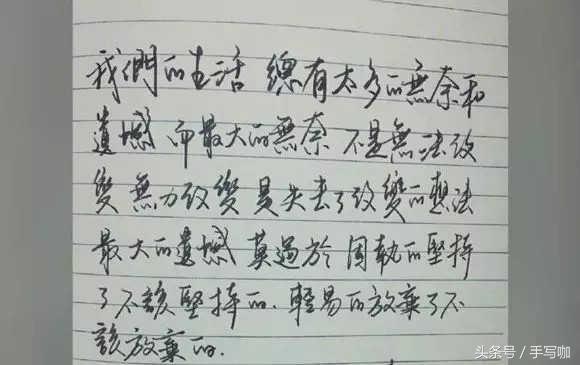 我們的生活 總有太多的無奈和
遺憾 而最大的無奈 不是無法改
變 無力改變 是失去了改變的想法
最大的遺憾 莫過於 固執的堅持
了不該堅持的. 輕易的放棄了不
該放棄的.
头条号 / 手写咖